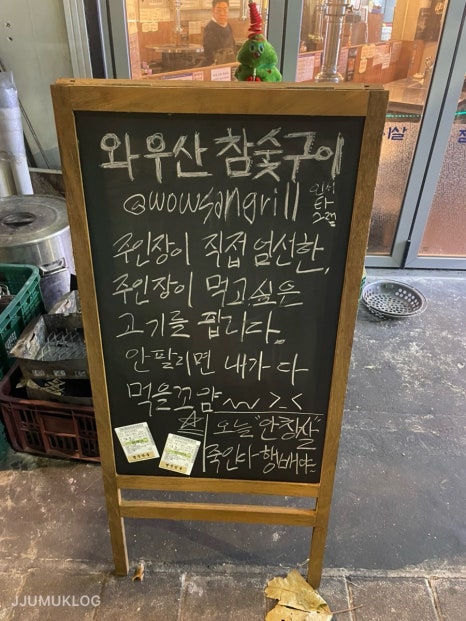 와우산 참숯구이
@wowsangrill
인스타그램
주인장이 직접 엄선한,
주인장이 먹고싶은
고기를 팝니다.
안팔리면 내가 다
먹을꼬얌~~ >_<
오늘 "안창살"
죽인다 행배야~
JJUMUKLOG